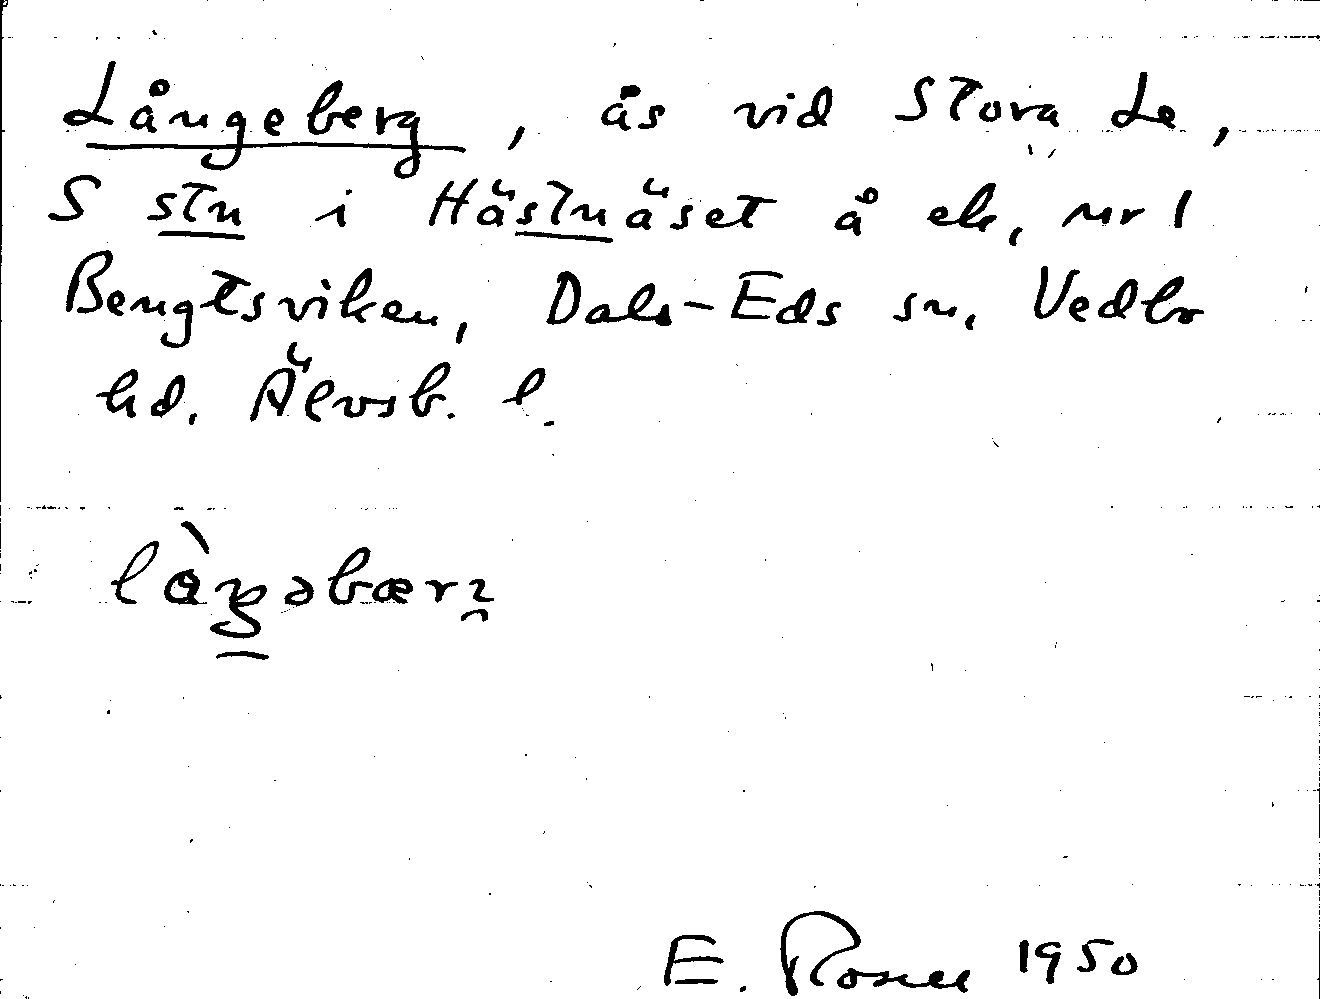 Långeberg, ås vid Stora Le,
S stn i Hästnäset å ek, nr 1
Bengtsviken, Dals-Eds sn, Vedbo
hd. Älvsb. l.
E. Rosell 1950